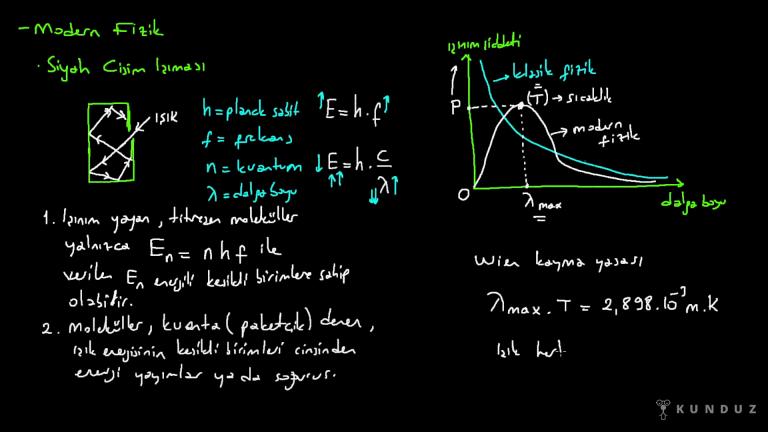 - Modern Fizik
· Siyah Cisim Işıması
IŞIK
h = planck sabit
f = frekans
n = kuantum
λ = dalga boyu
↑E = h.f↑
↓E = h. c/λ↑
↑↑ ↓↓
1. Işınım yayan, titreşen moleküller
yalnızca En = nhf ile
verilen En enerjili kesikli birimlere sahip
olabilir.
2. moleküller, kuanta (paketçik) denen,
ışık enerjisinin kesikli birimleri cinsinden
enerji yayımlar ya da soğurur.
ışınım şiddeti
klasik fizik
P
(T) → sıcaklık
modern
fizik
O
λmax
dalga boyu
Wien kayma yasası
λmax . T = 2,898.10⁻³ m.K
Işık
KUNDUZ